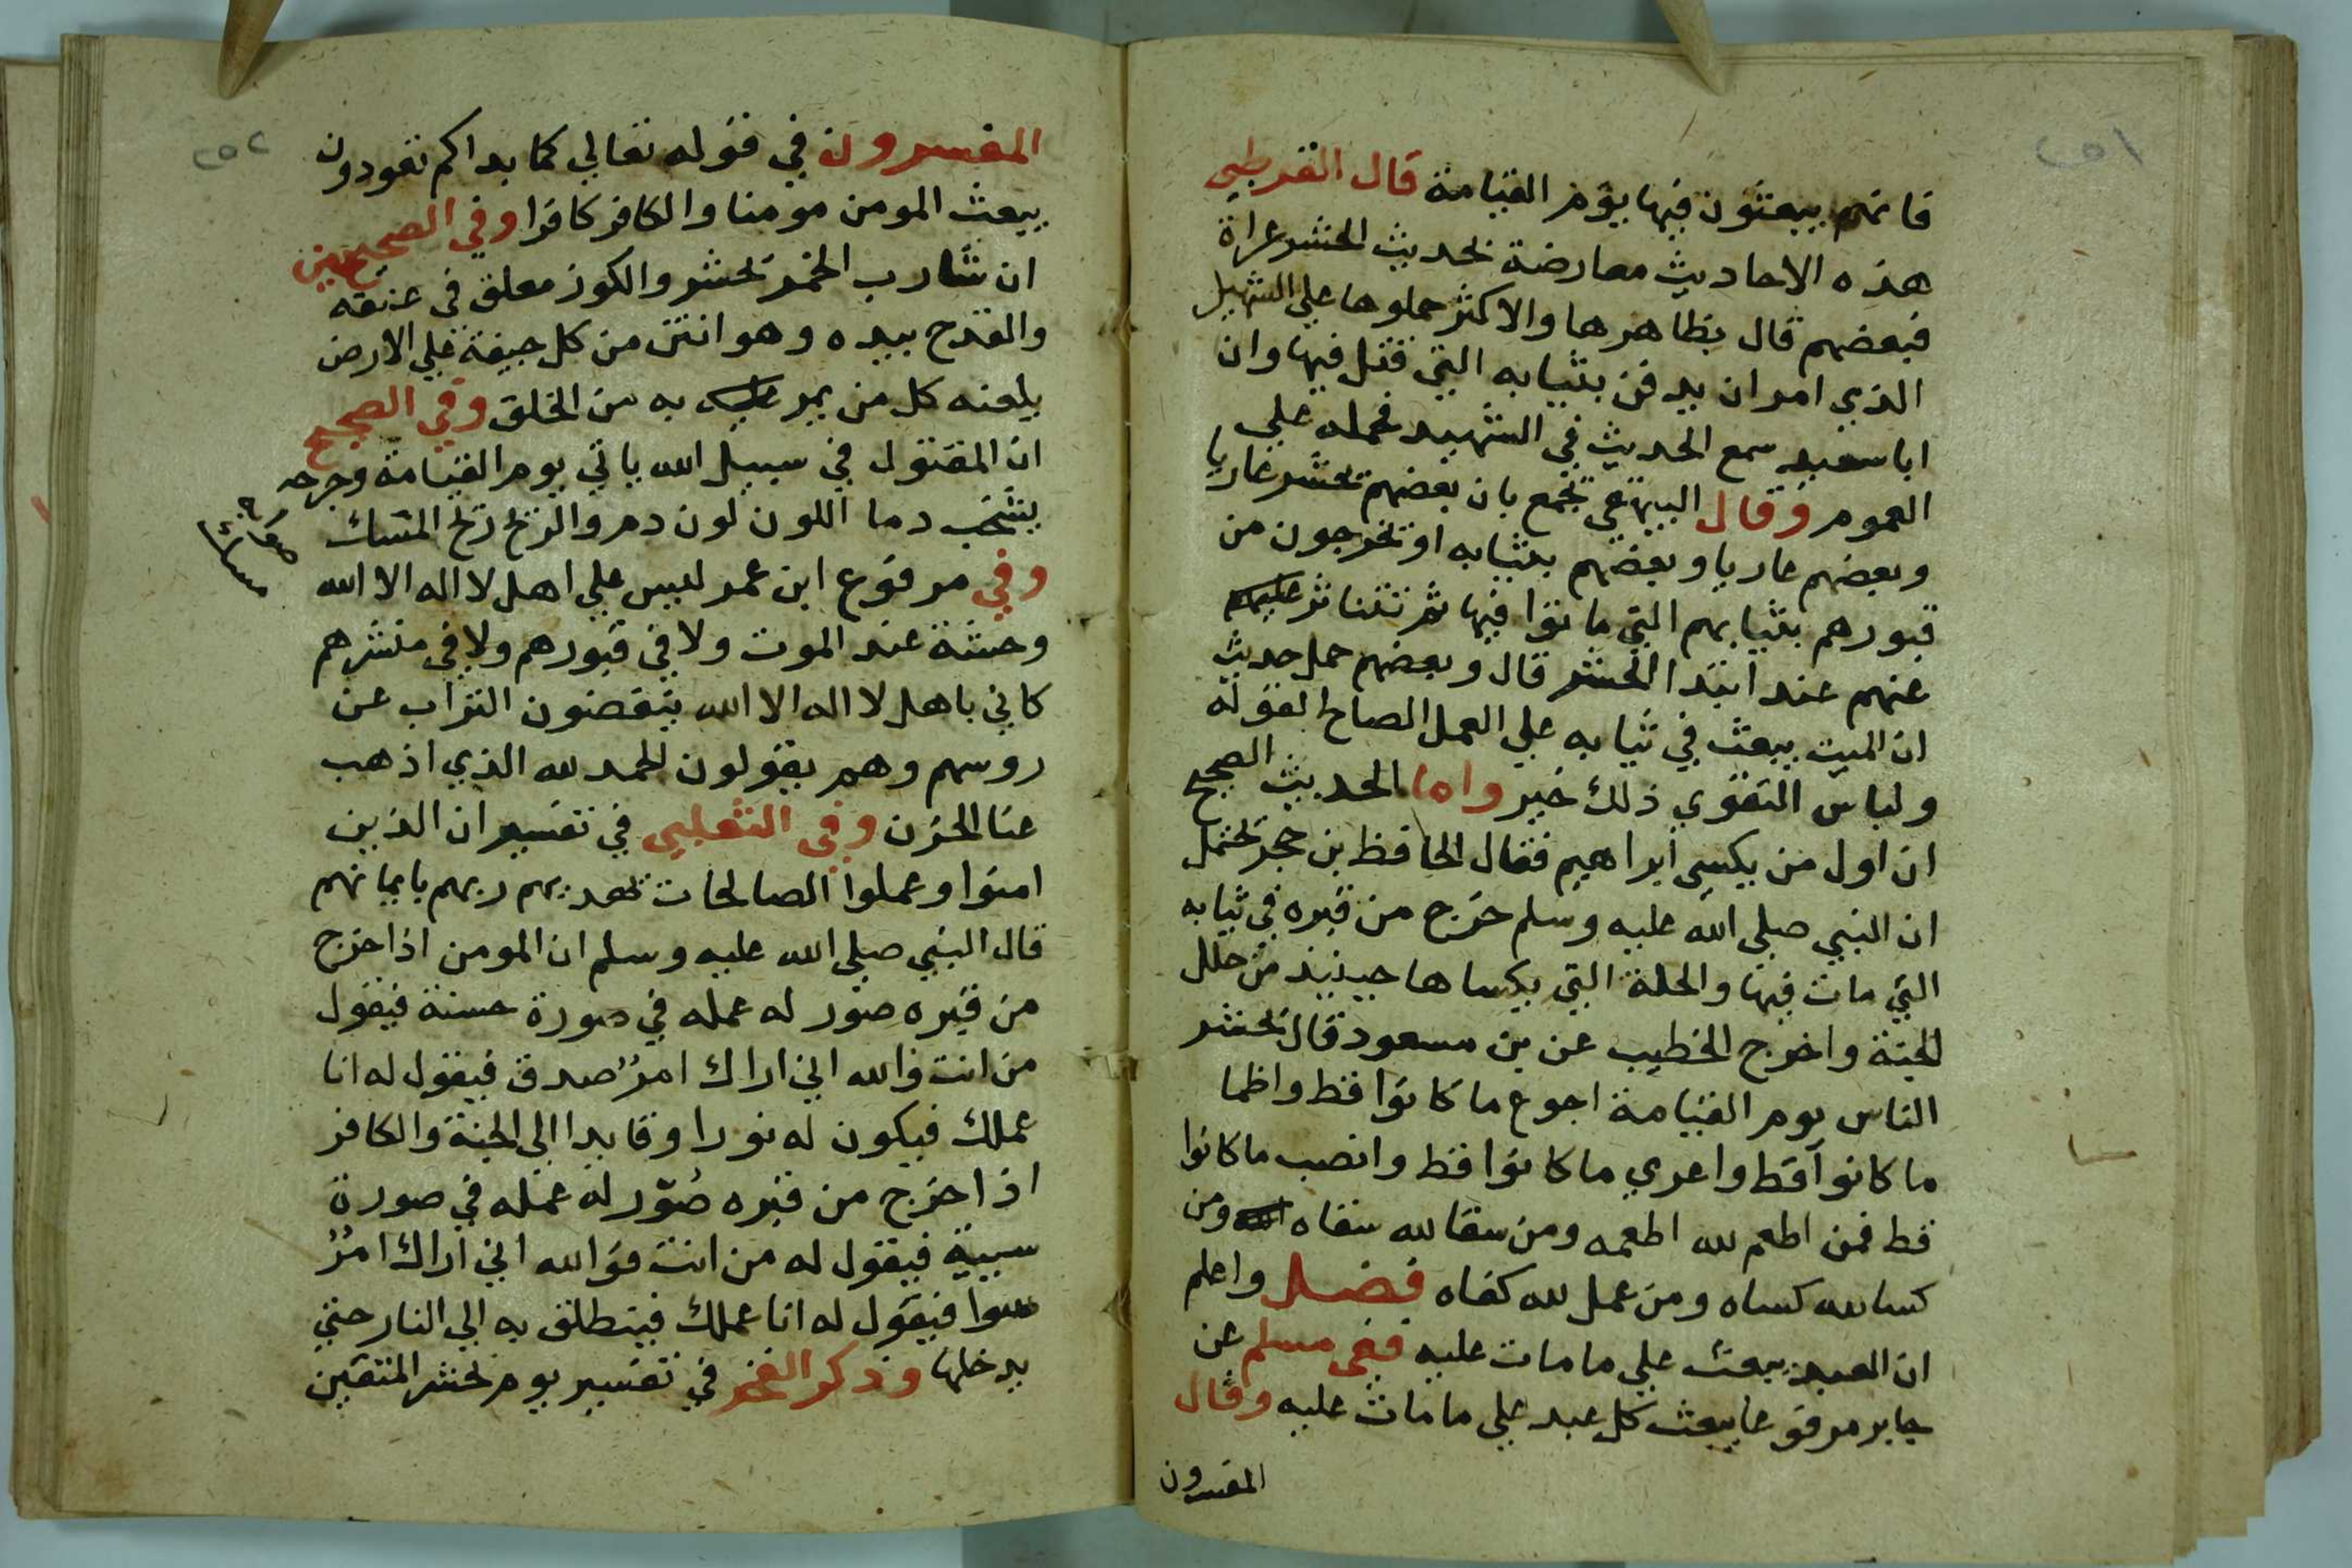 ٢٥١
فانهم يبعثون فيها يوم القيامة قال القرطبي
هذه الاحاديث معارضة لحديث الحشر عراة
فبعضهم قال بظاهرها والاكثر حملوها علي الشهيد
الذي امر ان يدفن بثيابه التي قتل فيها وان
ابا سعيد سمع الحديث في الشهيد فحمله علي
العموم وقال البيهقي يجمع بان بعضهم يحشر عاريا
وبعضهم عاريا وبعضهم بثيابه او يخرجون من
قبورهم بثيابهم التي ماتوا فيها ثم تتناثر
عنهم عند ابتدا الحشر قال وبعضهم حمل حديث
ان الميت يبعث في ثيابه علي العمل الصالح لقوله
ولباس التقوي ذلك خير واما الحديث الصحيح
ان اول من يكسي ابراهيم فقال الحافظ بن حجر يحتمل
ان النبي صلي الله عليه وسلم خرج من قبره في ثيابه
التي مات فيها والحلة التي يكساها حينيذ من حلل
الجنة واخرج الخطيب عن بن مسعود قال يحشر
الناس يوم القيامة اجوع ما كانوا قط واظما
ما كانوا قط واعري ما كانوا قط وانصب ما كانوا
قط فمن اطعم لله اطعمه ومن سقا لله سقاه ومن
كسا لله كساه ومن عمل لله كفاه فصل واعلم
ان العبد يبعث علي ما مات عليه ففي مسلم عن
جابر مرفوعا يبعث كل عبد علي ما مات عليه وقال
المفسرون
٢٥٢
المفسرون في قوله تعالي كما بداكم تعودون
يبعث المومن مومنا والكافر كافرا وفي الصحيحين
ان شارب الخمر يحشر والكوز معلق في عنقه
والقدح بيده وهو انتن من كل جيفة علي الارض
يلعنه كل من يمر به من الخلق وفي الصحيح
ان المقتول في سبيل الله ياتي يوم القيامة وجرحه
يشخب دما اللون لون دم والريح ريح المسك
وفي مرفوع ابن عمر ليس علي اهل لا اله الا الله
وحشة عند الموت ولا في قبورهم ولا في منشرهم
كاني باهل لا اله الا الله ينقضون التراب عن
روسهم وهم يقولون الحمد لله الذي اذهب
عنا الحزن وفي الثعلبي في تفسير ان الذين
امنوا وعملوا الصالحات يهديهم ربهم بايمانهم
قال النبي صلي الله عليه وسلم ان المومن اذا خرج
من قبره صور له عمله في صورة حسنة فيقول
من انت فوالله اني اراك امرُ صدق فيقول له انا
عملك فيكون له نورا وقايدا الي الجنة والكافر
اذا خرج من قبره صُوّر له عمله في صورة
سيية فيقول له من انت فوالله اني اراك امرُ
سوا فيقول له انا عملك فينطلق به الي النار حتي
يدخلها وذكر الفخر في تفسير يوم نحشر المتقين